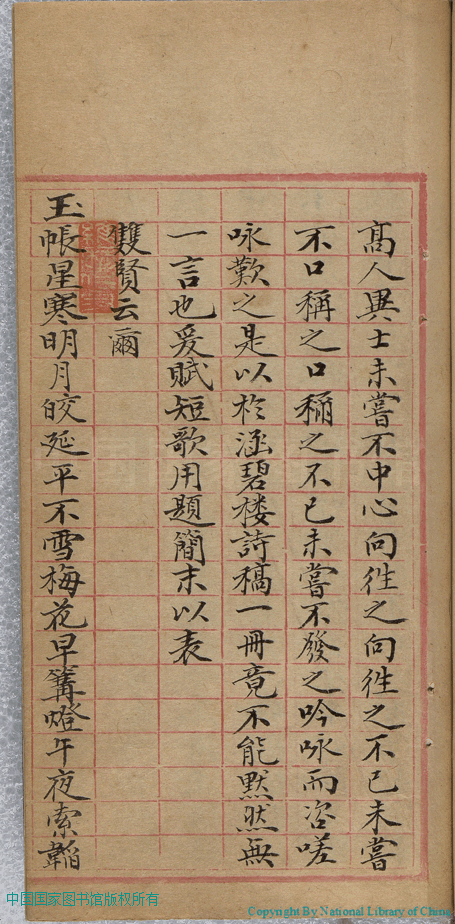 高人異士未嘗不中心向徃之向徃之不已未嘗
不口稱之口稱之不已未嘗不發之吟咏而咨嗟
咏歎之是以於涵碧楼詩稿一冊竟不能默然無
一言也爰賦短歌用題簡末以表
雙賢云爾
玉帳星寒明月皎延平不雪梅花早篝燈午夜索韜
中国国家图书馆版权所有
Copyright By National Library of China